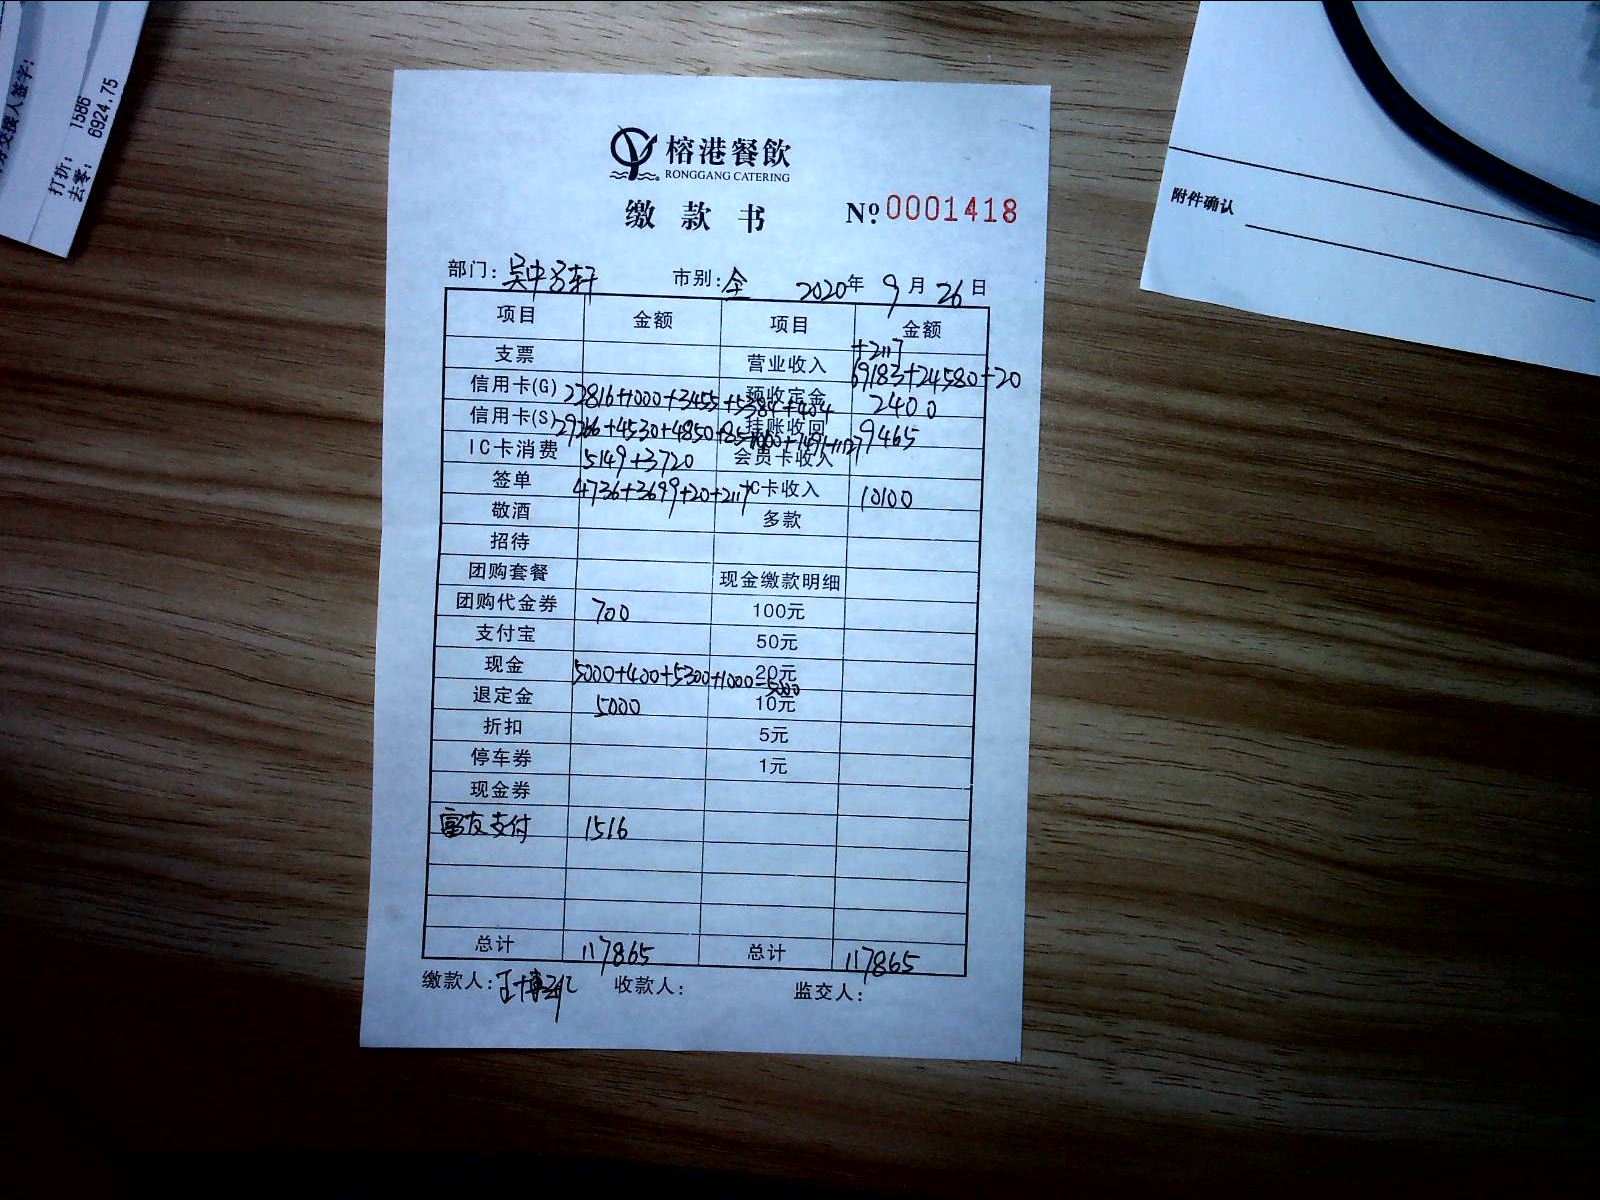 打折： 1586
去零： 6924.75
附件确认
榕港餐飲
RONGGANG CATERING
缴 款 书 Nº 0001418
部门： 吴中 轩 市别： 全 2020年 9月 26日
项目 金额 项目 金额
支票 营业收入 +2117
69183+24580+20
信用卡(G) 22816+1000+3455+5384+404 预收定金 2400
信用卡(S) 29266+4530+4850+ 挂账收回 9465
IC卡消费 5149+3720 会员卡收入
签单 4736+3699+20+2117 IC卡收入 10100
敬酒 多款
招待
团购套餐 现金缴款明细
团购代金券 700 100元
支付宝 50元
现金 5000+400+5300+1000-5000 20元
退定金 5000 10元
折扣 5元
停车券 1元
现金券
富友支付 1516
总计 117865 总计 117865
缴款人： 王博 收款人： 监交人：